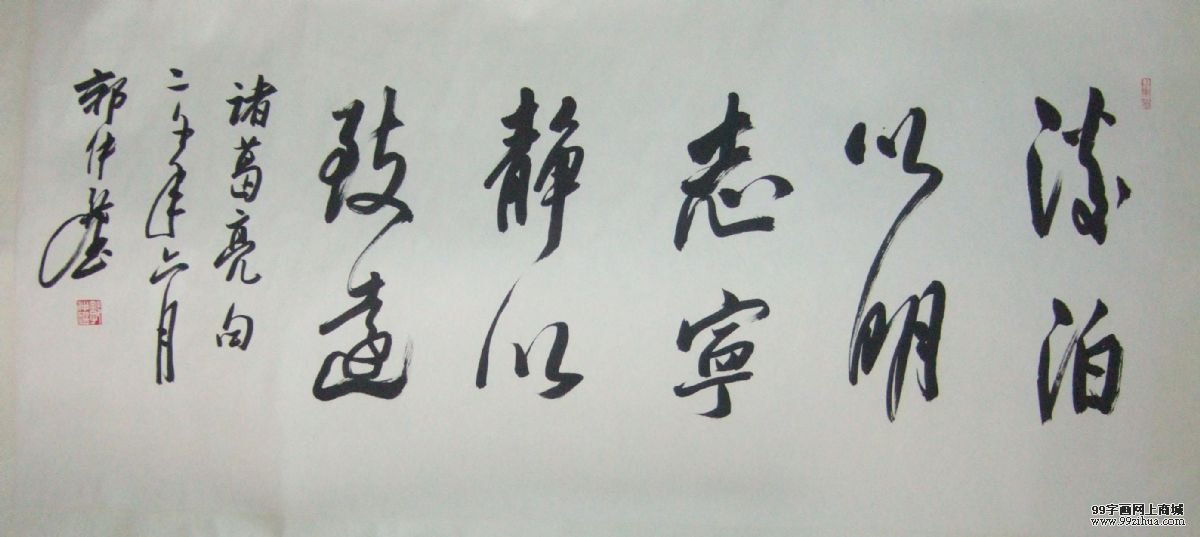 淡泊
以明
志寧
静以
致遠
诸葛亮句
二〇〇年六月
郭仲
99字画网上商城
www.99zihua.com